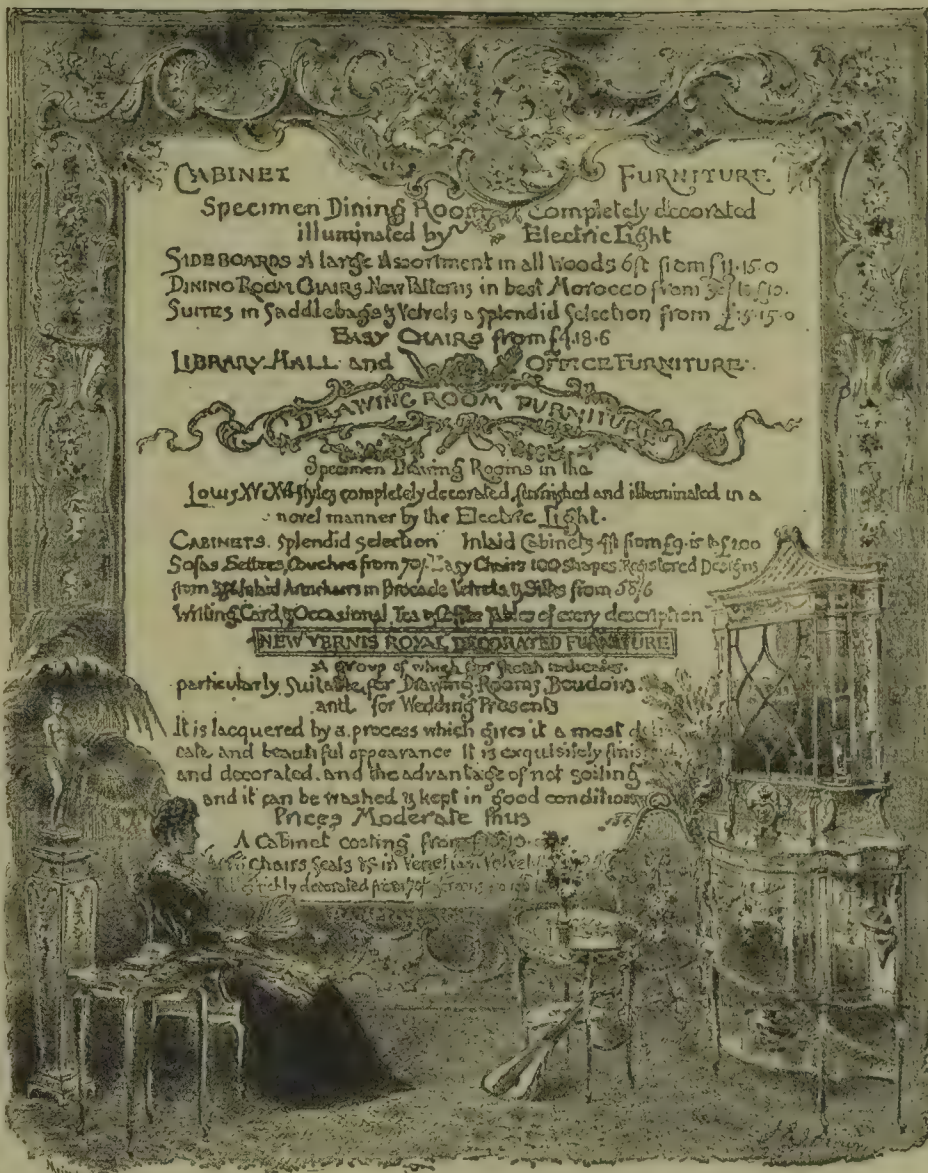 CABINET FURNITURE
Specimen Dining Room Completely decorated
illuminated by Electric Light
SIDEBOARDS A large Assortment in all Woods 6ft from £11.15.0
DINING ROOM CHAIRS New Patterns in best Morocco from
SUITES in Saddlebags & Velvets a splendid Selection from
EASY CHAIRS from £4.18.6
LIBRARY HALL and OFFICE FURNITURE.
DRAWING ROOM FURNITURE
Specimen Drawing Rooms in the
Louis XV & XVI styles completely decorated, furnished and illuminated in a
novel manner by the Electric Light.
CABINETS. splendid selection Inlaid Cabinets 4ft from to £200
Sofas Settees, Couches from 70/- Easy Chairs 100 shapes, Registered Designs
from Inlaid Armchairs in Brocade Velvets & Silks from 58/6
Writing, Card, & Occasional, Tea & Coffee Tables of every description
NEW VERNIS ROYAL DECORATED FURNITURE
A group of which our sketch indicates.
particularly Suitable for Drawing Rooms, Boudoirs.
and for Wedding Presents
It is lacquered by a process which gives it a most
cate and beautiful appearance It is exquisitely
and decorated. and the advantage of not soiling
and it can be washed & kept in good condition
Prices Moderate thus
A Cabinet costing from
Chairs Seats in Venetian Velvet
richly decorated from